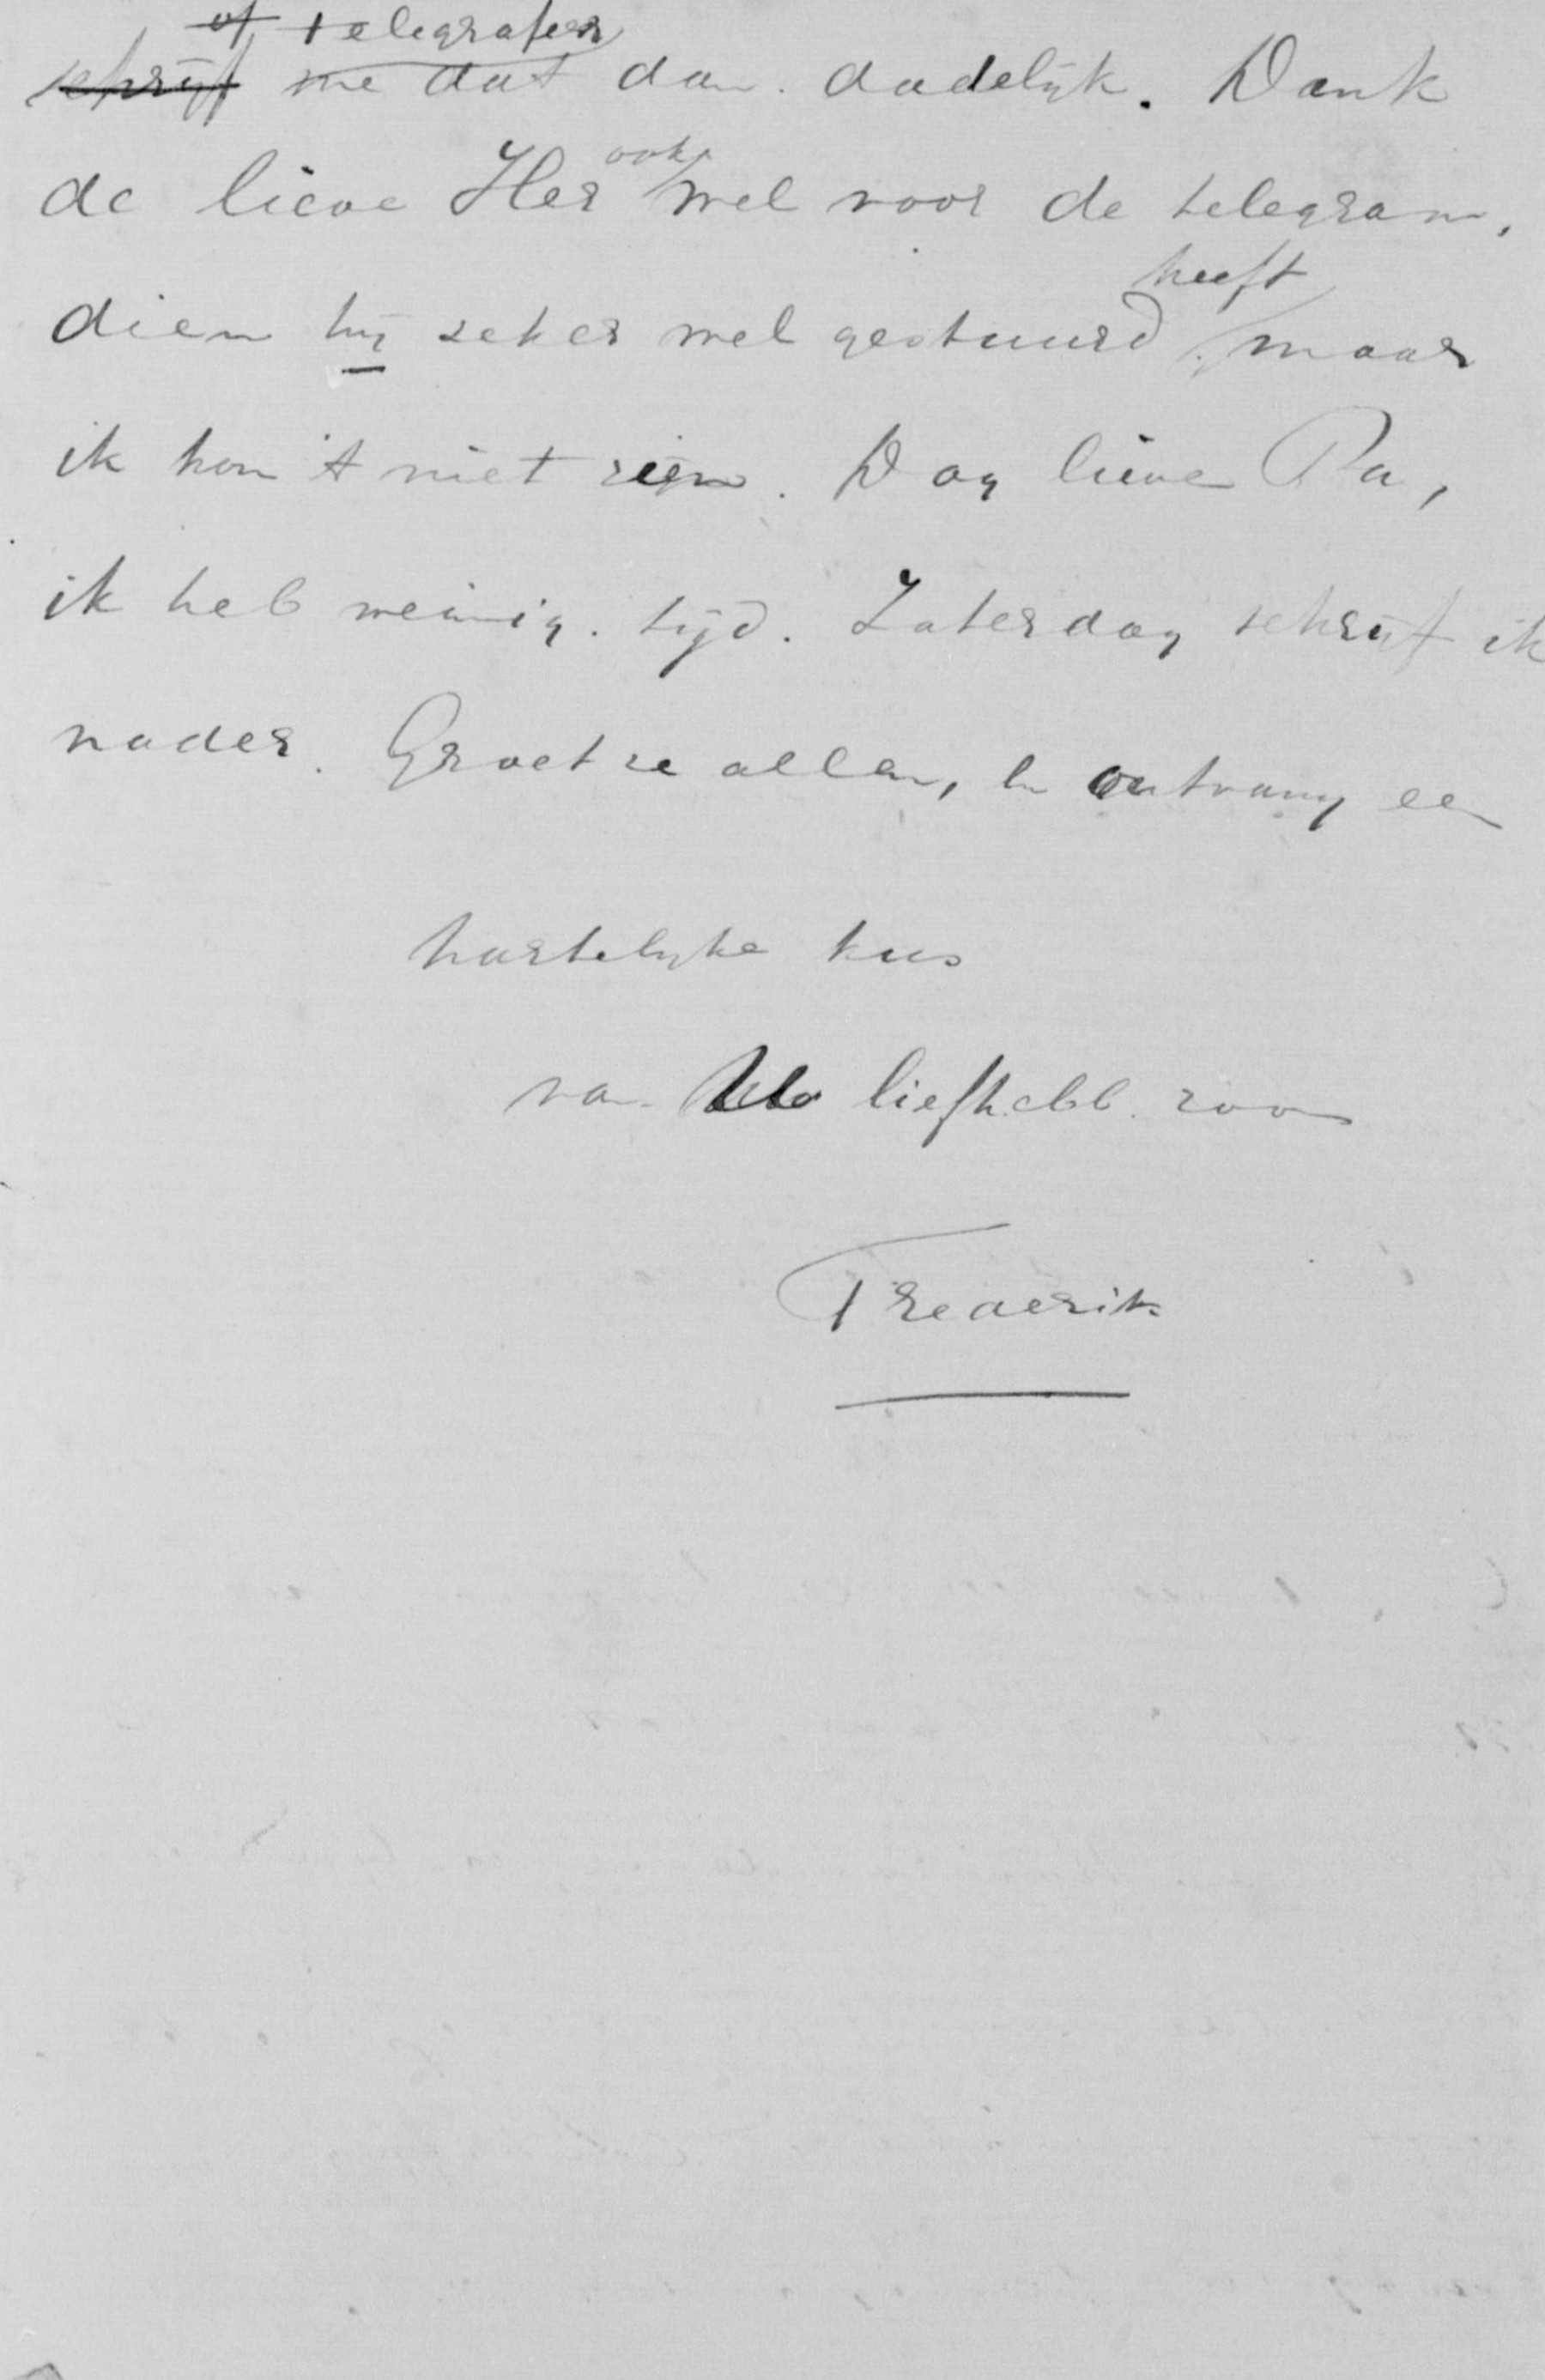 of telegrafeer
schrijf me dat dan dadelijk. Dank
ook
de lieve Her wel voor de telegram,
heeft
dien hij zeker wel gestuurd, maar
ik kon 't niet zien. Dag lieve Pa,
ik heb weinig tijd. Zaterdag schrijf ik
nader. Groet ze allen, en ontvang een
hartelijke kus
van Uw liefhebb. zoon
Frederik